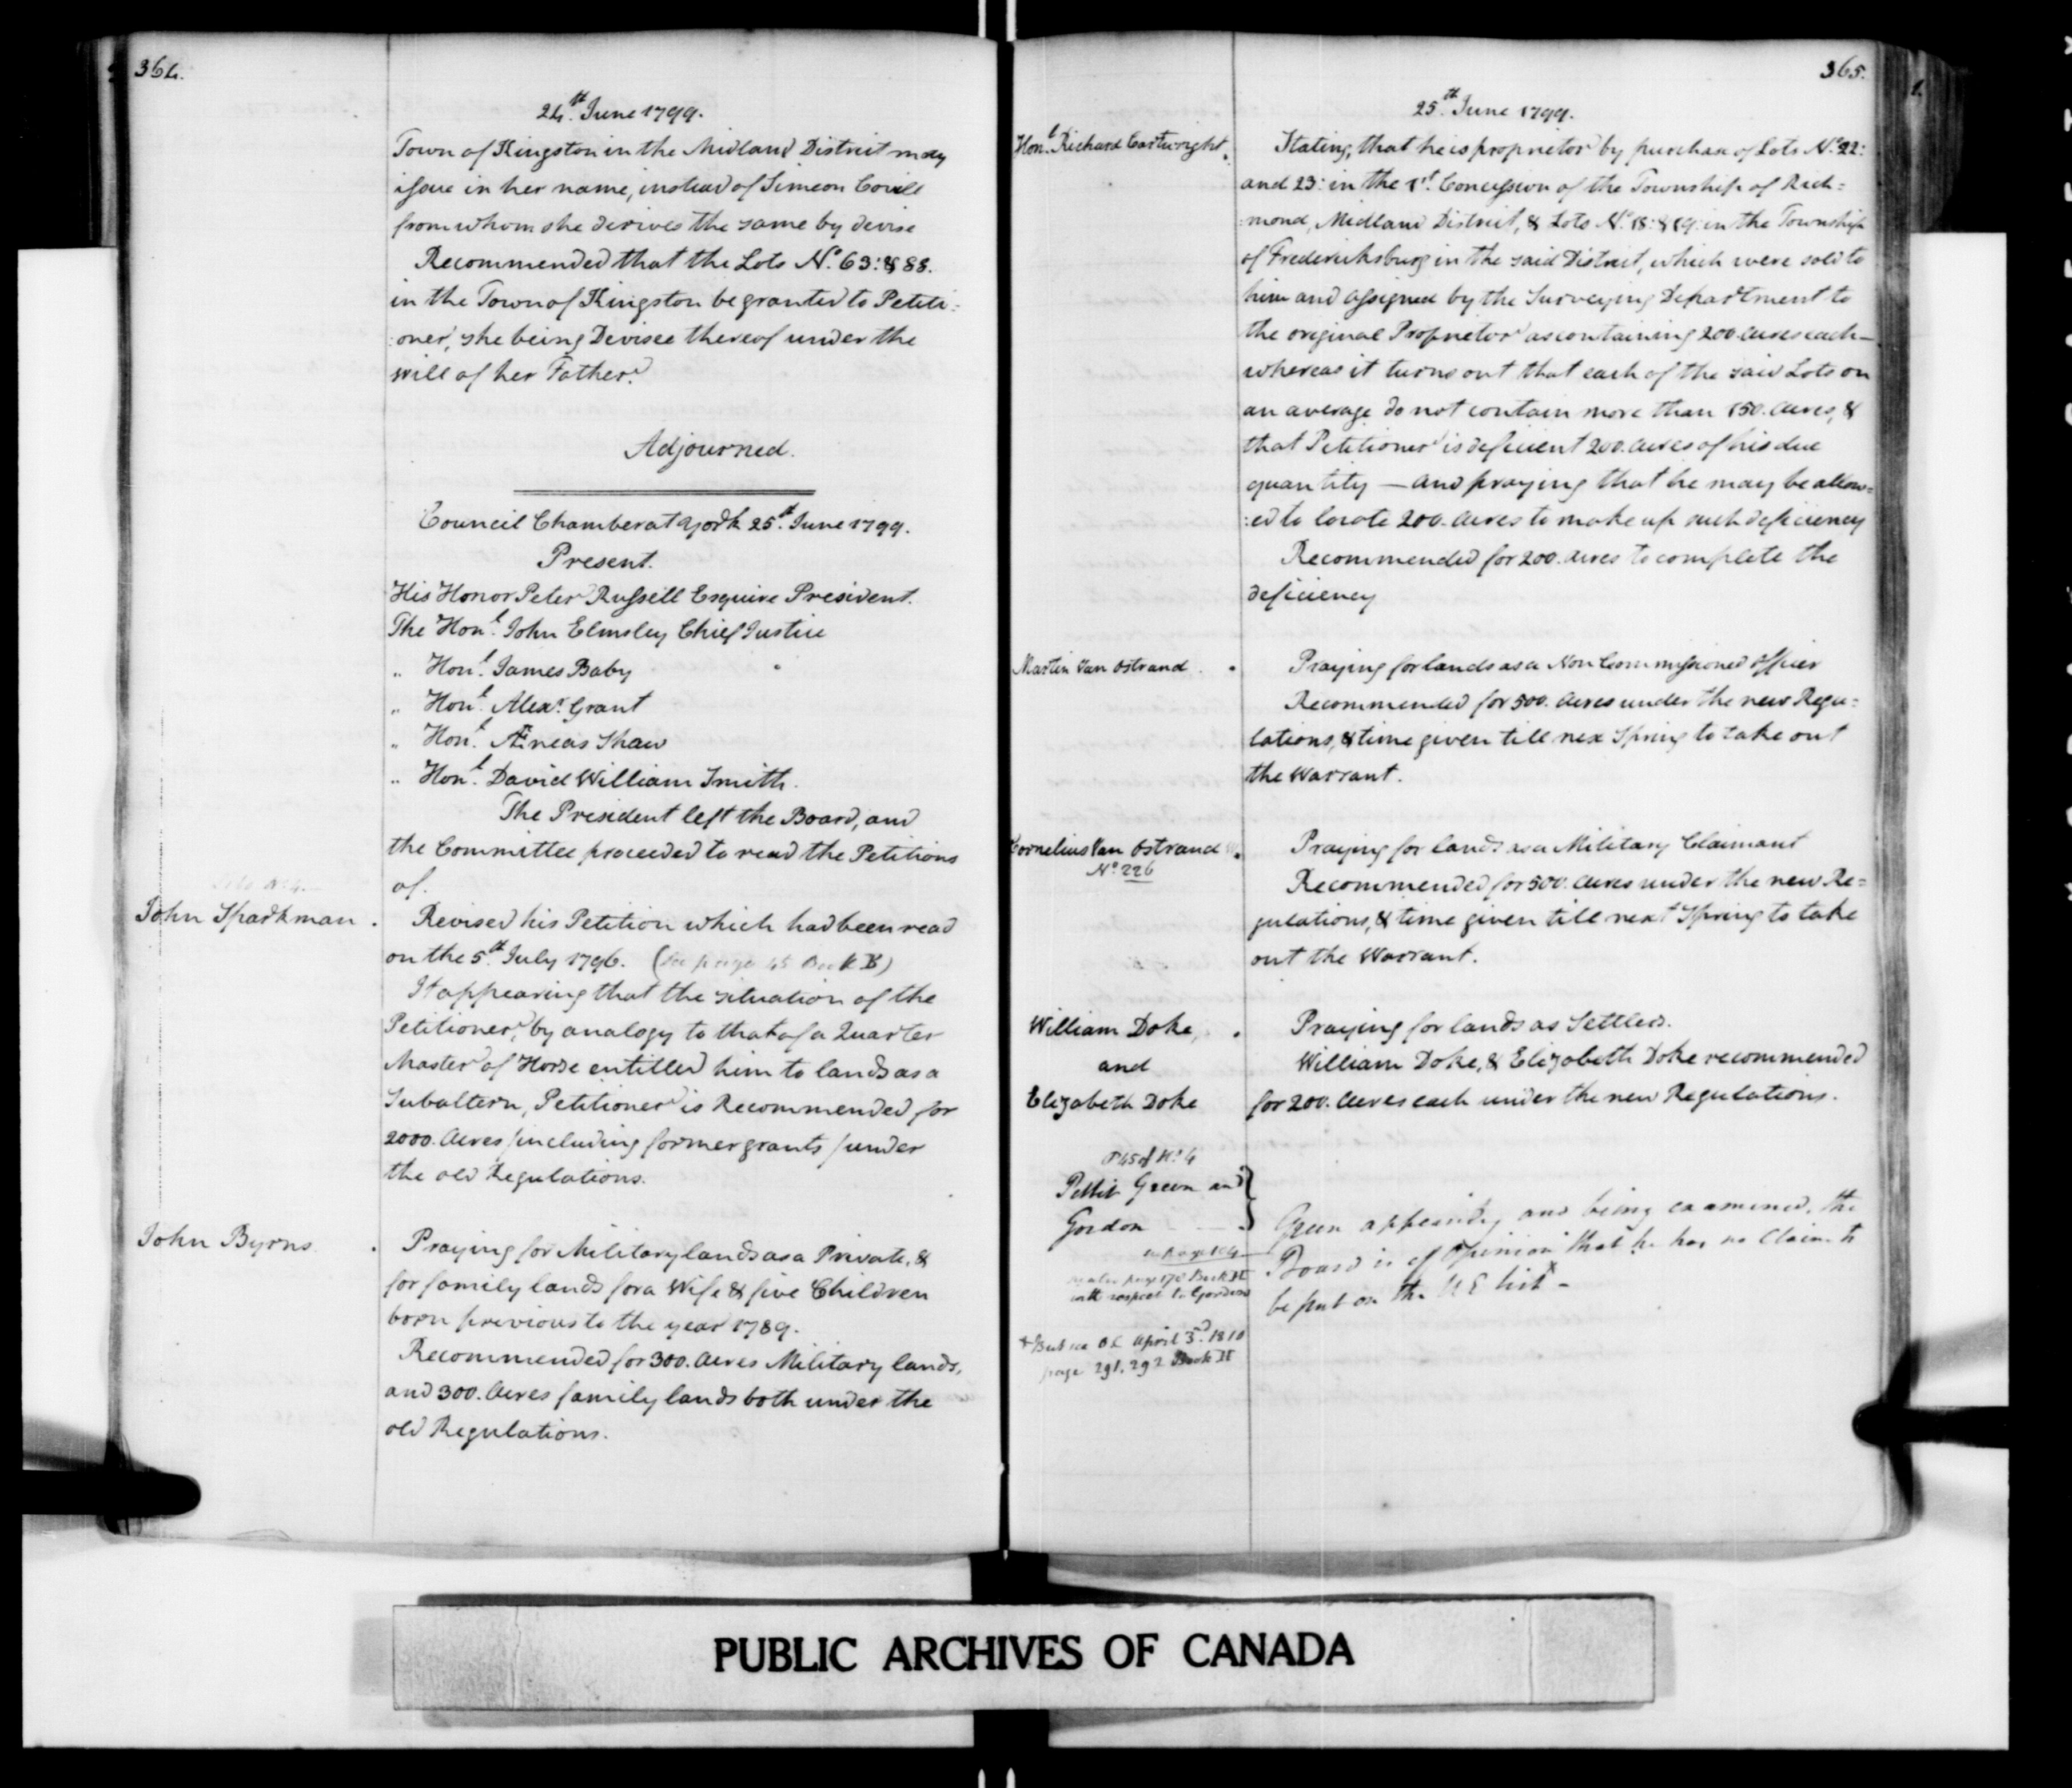 364.
24.th June 1799.
Town of Kingston in the Midland District may
issue in her name, instead of Simeon Covill
from whom she derives the same by devise
Recommended that the Lots No. 63: & 88.
in the Town of Kingston be granted to Petiti:
:oner, she being Devisee thereof under the
will of her Father.
Adjourned.
Council Chamber at York 25.th June 1799.
Present.
His Honor Peter Russell Esquire President.
The Honl. John Elmsley Chief Justice
" Honl. James Baby
" Honl. Alexr. Grant
" Honl. Æneas Shaw
" Honl. David William Smith.
The President left the Board, and
the Committee proceeded to read the Petitions
of.
John Sparkman . Revised his Petition which had been read
on the 5.th July 1796. (See page 45 Book B)
It appearing that the situation of the
Petitioner, by analogy to that of a Quarter
Master of Horse entitled him to lands as a
Subaltern, Petitioner is Recommended for
2000. Acres /including former grants/ under
the old Regulations.
John Byrns . Praying for Military lands as a Private, &
for family lands for a Wife & five Children
born previous to the year 1789.
Recommended for 300. Acres Military lands,
and 300. Acres family lands both under the
old Regulations.
365.
25.th June 1799.
Honl. Richard Cartwright . Stating, that he is proprietor by purchase of Lots No. 22:
and 23: in the 1st. Concession of the Township of Rich:
:mond, Midland District, & Lots No. 18: & 19: in the Township
of Fredericksburg in the said District, which were sold to
him and assigned by the Surveying Department to
the original Proprietor as containing 200. Acres each—
whereas it turns out that each of the said Lots on
an average do not contain more than 150. Acres, &
that Petitioner is deficient 200. Acres of his due
quantity — and praying that he may be allow:
:ed to locate 200. Acres to make up such deficiency
Recommended for 200. Acres to complete the
deficiency
Martin Van Ostrand . Praying for lands as a Non Commissioned Officer
Recommended for 500. Acres under the new Regu:
lations, & time given till nex Spring to take out
the Warrant.
Cornelius Van Ostrand . Praying for lands as a Military Claimant
No. 226
Recommended for 500. Acres under the new Re:
gulations, & time given till next Spring to take
out the Warrant.
William Doke, . Praying for lands as Settlers.
and William Doke, & Elizabeth Doke recommended
Elizabeth Doke for 200. Acres each under the new Regulations.
P 45 of No. 4
Pettit Green and }
Gordon Green appearing and being examined, the
Board is of Opinion that he has no Claim to
be put on the U E list x –
page 178 Book
with respect to Gordon
x But see O C April 3d. 1810
page 291, 292 Book H
PUBLIC ARCHIVES OF CANADA